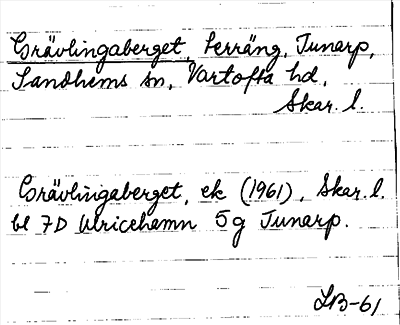 Grävlingaberget, terräng, Tunarp,
Sandhems sn, Vartofta hd,
Skar. l.
Grävlingaberget, ek (1961), Skar. l.
bl 7D Ulricehamn 5g Tunarp.
LB-61